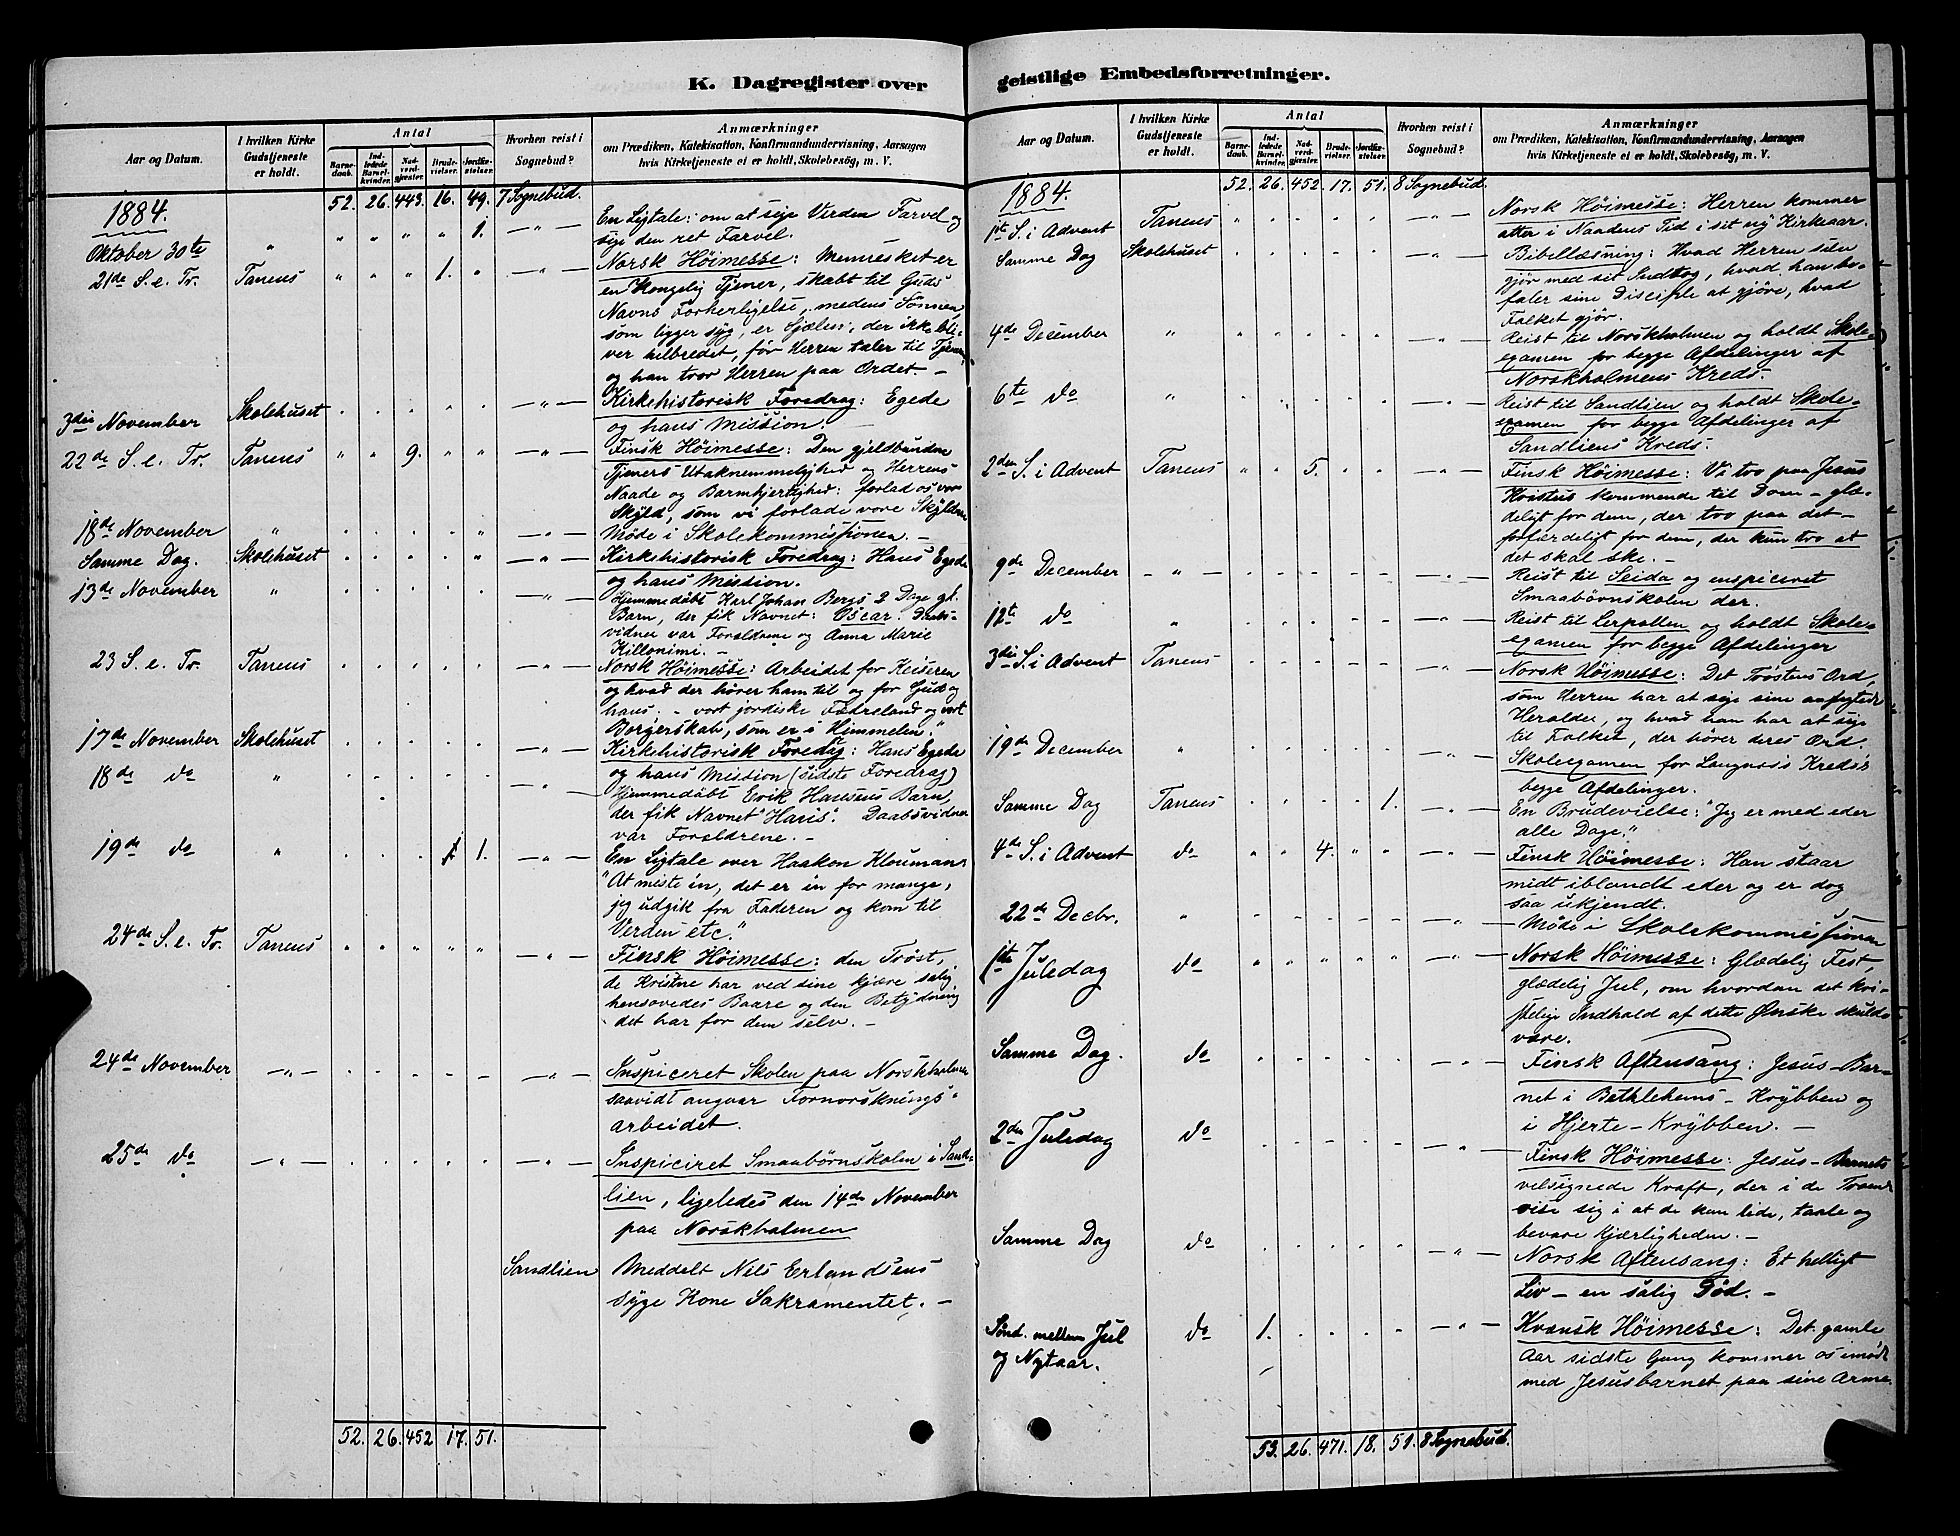 K. Dagregister over
Aar og Datum.
I hvilken Kirke
Gudstjeneste
er holdt.
Antal
Barne-
daab.
Ind-
ledede
Barsel-
kvinder.
Nad-
verd-
gjæster.
Brude-
vielser.
Jordfæ-
stelser.
Hvorhen reist i
Sognebud?
Anmærkninger
om Prædiken, Katekisation, Konfirmandundervisning, Aarsagen
hvis Kirketjeneste ei er holdt, Skolebesög, m. V.
1884. 52. 26. 443. 16. 49. 7 Sognebud.
Oktober 30te " " " " " 1. — " — En Ligtale: om at sige Verden Farvel og
sige den ret Farvel.
21de S. e. Tr. Tanens " " " 1. " — " — Norsk Höimesse: Mennesket er
en Kongelig Tjener, skabt til Guds
Navns Forherligelse, medens Sönnen,
som ligger syg, er Sjælen, der ikke bli-
ver helbredet, för Herren taler til Tjener
og han tror Herren paa Ordet. —
3die November Skolehuset — " — Kirkehistorisk Foredrag: Egede
og hans Mission.
22de S. e. Tr. Tanens " " 9. " " — " — Finsk Höimesse: Den gjeldbundne
Tjeners Utaknemmelighed og Herrens
Naade og Barmhjertighed: forlad os vor
Skyld, som vi forlade vore Skyldnere
18de November " — " — Möde i Skolekommissionen. —
Samme Dag. Skolehuset — " — Kirkehistorisk Foredrag: Hans Egede
og hans Mission.
13de November " — " — Hjemmedöbt Karl Johan Bergs 2 Dage gl.
Barn, der fik Navnet: Oscar. Daabs-
vidner var Forældrene og Anna Marie
Killonimi. —
23 S. e. Tr. Tanens — " — Norsk Höimesse: Arbeidet for Keiseren
og hvad der hörer ham til og for Gud og
hans. — vort jordiske Fædreland og vort
Borgerskab, som er i Himmelen."
17de November Skolehuset — " — Kirkehistorisk Foredrag: Hans Egede
og hans Mission (sidste Foredrag)
18de do " — " — Hjemmedöbt Erik Hansens Barn,
der fik Navnet "Hans". Daabsvidner
var Forældrene. —
19de do " 1. — " — En Ligtale over Haakon Kloumann:
"At miste én, det er én for mange,
jeg udgik fra Faderen og kom til
Verden etc."
24de S. e. Tr. Tanens " " " " " — " — Finsk Höimesse: den Tröst,
de Kristne har ved sine kjære salig
hensovedes Baare og den Betydning
det har for dem selv. —
24de November — " — — " — Inspiceret Skolen paa Norskholmen
saavidt angaar Fornorsknings-
arbeidet.
25de do — " — — " — Inspiciret Smaabörnskolen i Sand-
lien, ligeledes den 14de November
paa Norskholmen
Sandlien Meddelt Nils Erlandsens
syge Kone Sakramentet. —
52. 26. 452 17. 51.
geistlige Embedsforretninger.
Aar og Datum.
I hvilken Kirke
Gudstjeneste
er holdt.
Antal
Barne-
daab.
Ind-
ledede
Barsel-
kvinder.
Nad-
verd-
gjæster.
Brude-
vielser.
Jordfæ-
stelser.
Hvorhen reist i
Sognebud?
Anmærkninger
om Prædiken, Katekisation, Konfirmandundervisning, Aarsagen
hvis Kirketjeneste ei er holdt, Skolebesög, m. V.
1884. 52. 26. 452. 17. 51. 8 Sognebud.
1ste S. i Advent Tanens — " — Norsk Höimesse: Herren kommer
atter i Naadens Tid i sit ny Kirkeaar.
Samme Dag Skolehuset — " — Bibellæsning: Hvad Herren selv
gjör med sit Indtog, hvad han be-
faler sine Disciple at gjöre, hvad
Folket gjör.
4de December " — " — Reist til Norskholmen og holdt Skole-
examen for begge Afdelinger af
Norskholmens Kreds.
6te do " — " — Reist til Sandlien og holdt Skole-
examen for begge Afdelinger af
Sandliens Kreds.
2den S. i Advent Tanens " " 5. " " — " — Finsk Höimesse: Vi tro paa Jesus
Kristus kommende til Dom — glæ-
deligt for dem, der tro paa det —
forfærdeligt for dem, der kun tro at
det skal ske.
9de December — " — — " — Reist til Seida og inspiceret
Smaabörnskolen der.
12te do " — " — Reist til Lerpollen og holdt Skole-
examen for begge Afdelinger
3die S. i Advent Tanens — " — Norsk Höimesse: Det Tröstens Ord,
som Herren har at sige sine anfægtede
Herolder, og hvad han har at sige
til Folket, der hörer deres Ord.
19de December " — " — Skoleexamen for Langnæs Kreds's
begge Afdelinger.
Samme Dag Tanens 1. — " — En Brudevielse: "Jeg er med eder
alle Dage."
4de S. i Advent do " " 4. " " — " — Finsk Höimesse: Han staar
midt iblandt eder og er dog
saa ukjendt.
22de Decbr. " — " — Möde i Skolekommissionen
1ste Juledag do " " " " " — " — Norsk Höimesse: Glædelig Fest,
glædelig Jul, om hvordan det kri-
stelige Indhold af dette Önske skulde
være.
Samme Dag. do — " — Finsk Aftensang: Jesus-Bar-
net i Bethlehems-Krybben og
i Hjerte-Krybben. —
2den Juledag do — " — Finsk Höimesse: Jesus-Barnets
velsignede Kraft, der i de Troende
vise sig i at de kan lide, taale og
bevare Kjærligheden. —
Samme Dag do — " — Norsk Aftensang: Et helligt
Liv — en salig Död. —
Sönd. mellem Jul do 1. — " — Kvænsk Höimesse: Det gamle
og Nytaar. Aar sidste Gang kommer os imöde
med Jesusbarnet paa sine Arme.
53. 26. 471. 18. 51. 8 Sognebud.